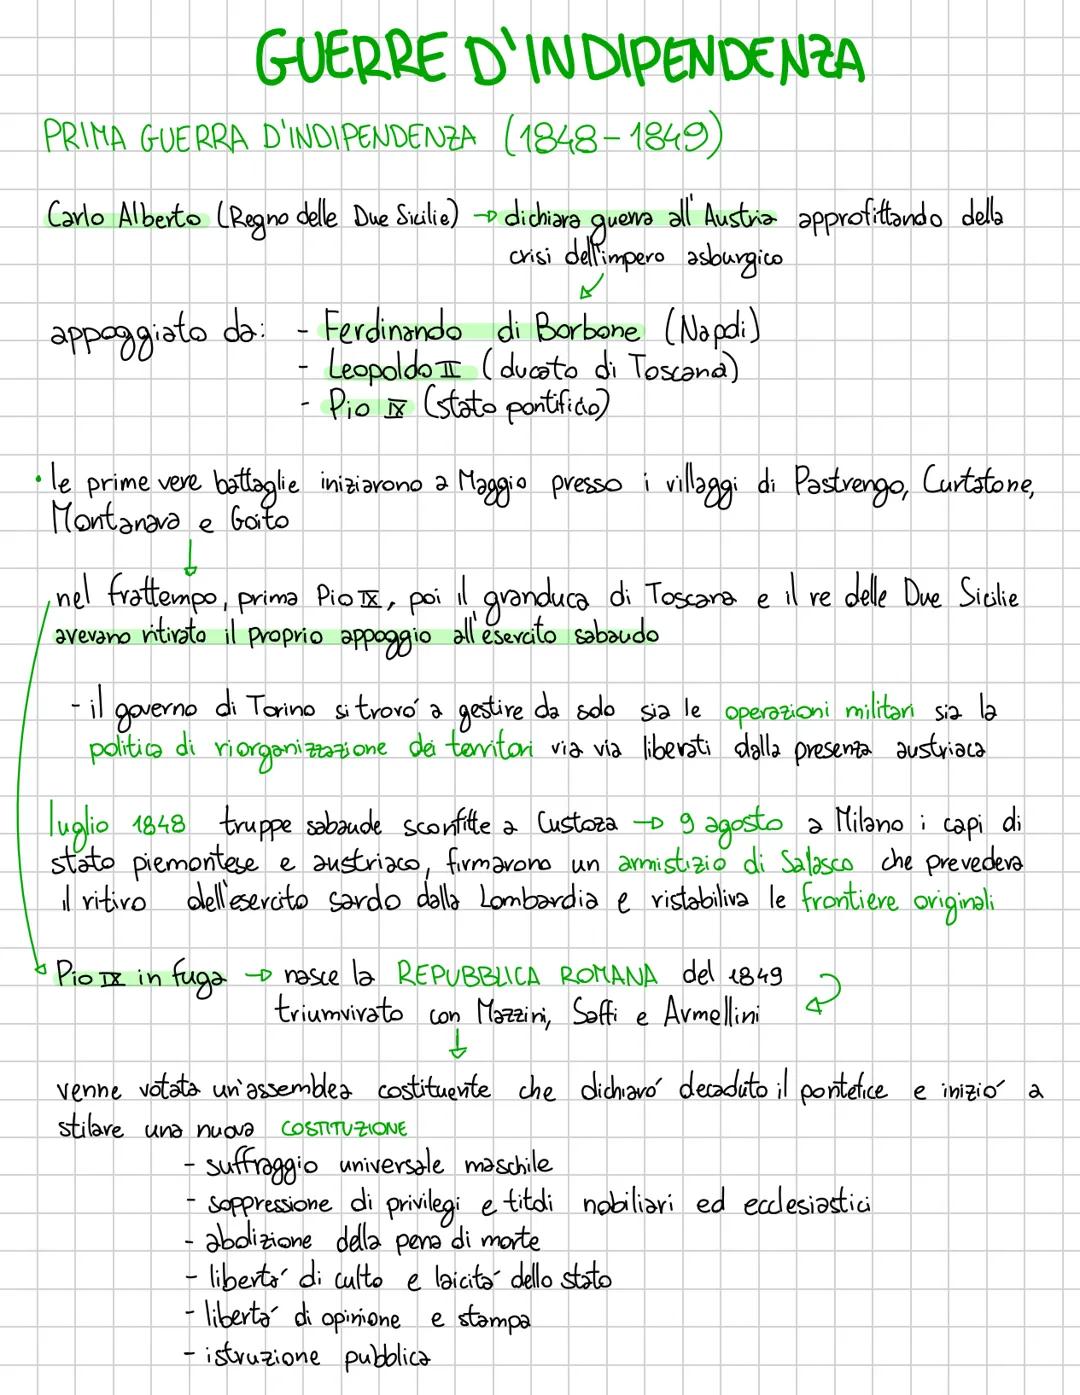 GUERRE D'INDIPENDENZA
PRIMA GUERRA D'INDIPENDENZA (1848-1849)
Carlo Alberto (Regno delle Due Sicilie) → dichiara guerra all'Austria approfittando della
crisi dell'impero asburgico
appoggiato da: - Ferdinando di Borbone (Napoli)
- Leopoldo II (ducato di Toscana)
- Pio IX (stato pontificio)
• le prime vere battaglie iniziarono a Maggio presso i villaggi di Pastrengo, Curtatone,
Montanara e Goito
nel frattempo, prima Pio IX, poi il granduca di Toscana e il re delle Due Sicilie
avevano ritirato il proprio appoggio all'esercito sabaudo
- il governo di Torino si trovò a gestire da solo sia le operazioni militari sia la
politica di riorganizzazione dei territori via via liberati dalla presenza austriaca
luglio 1848 truppe sabaude sconfitte a Custoza → 9 agosto a Milano i capi di
stato piemontese e austriaco, firmarono un armistizio di Salasco che prevedeva
il ritiro dell'esercito sardo dalla Lombardia e ristabiliva le frontiere originali
Pio IX in fuga → nasce la REPUBBLICA ROMANA del 1849
triumvirato con Mazzini, Saffi e Armellini
venne votata un'assemblea costituente che dichiarò decaduto il pontefice e iniziò a
stilare una nuova COSTITUZIONE
- suffraggio universale maschile
- soppressione di privilegi e titoli nobiliari ed ecclesiastici
- abolizione della pena di morte
- libertà di culto e laicità dello stato
- libertà di opinione e stampa
- istruzione pubblica